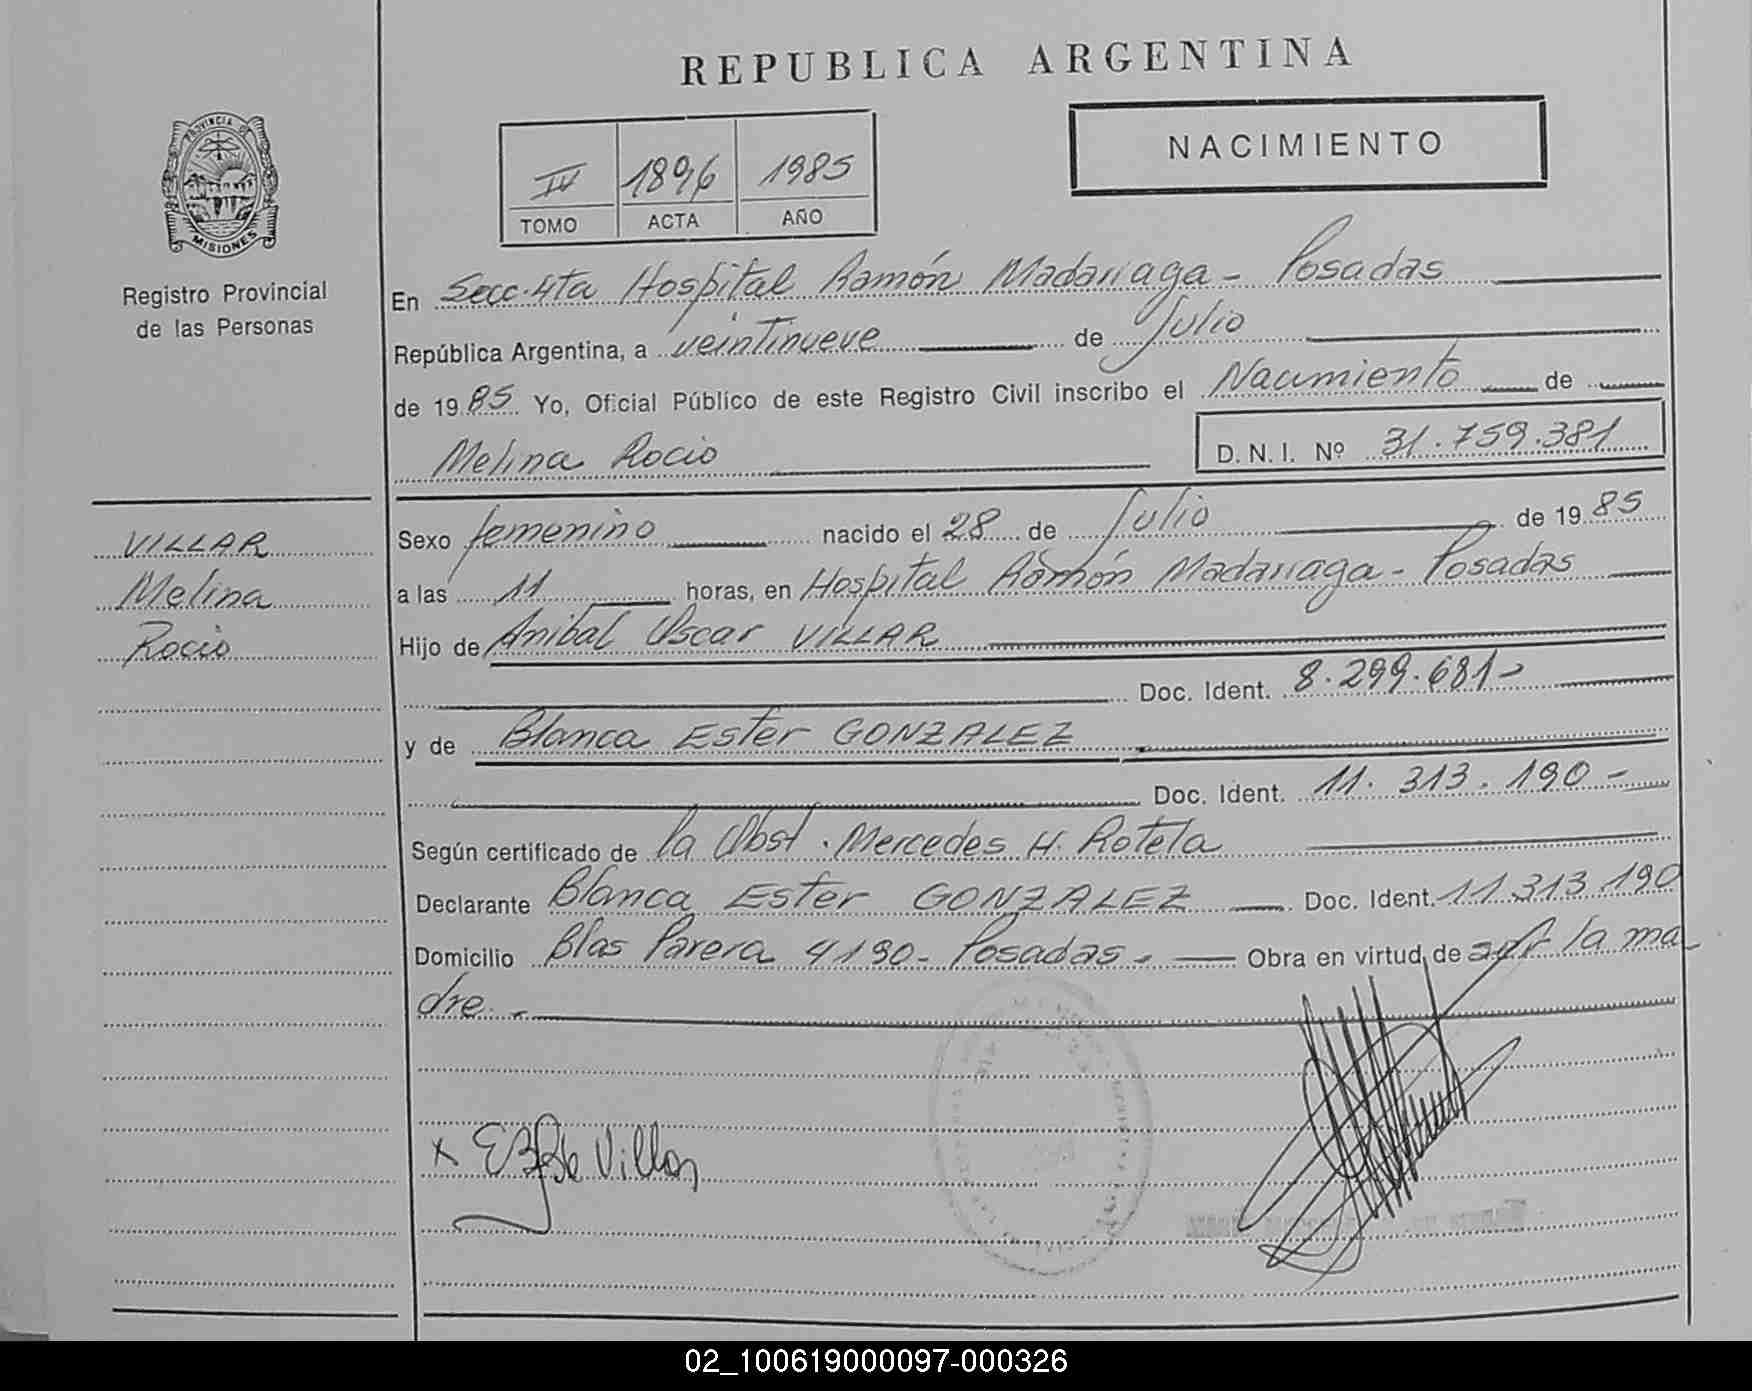 REPUBLICA ARGENTINA
PROVINCIA DE
MISIONES
Registro Provincial
de las Personas
NACIMIENTO
IV 1896 1985
TOMO ACTA AÑO
En Secc. 4ta Hospital Ramón Madariaga - Posadas
República Argentina, a veintinueve de Julio
de 1985 Yo, Oficial Público de este Registro Civil inscribo el Nacimiento de
Melina Rocio D.N.I. Nº 31.759.381
VILLAR
Melina
Rocio
Sexo femenino nacido el 28 de Julio de 1985
a las 11 horas, en Hospital Ramón Madariaga - Posadas
Hijo de Anibal Oscar VILLAR
Doc. Ident. 8.299.681-
y de Blanca Ester GONZALEZ
Doc. Ident. 11.313.190-
Según certificado de la Obst. Mercedes H. Rotela
Declarante Blanca Ester GONZALEZ Doc. Ident. 11.313.190
Domicilio Blas Parera 4190- Posadas.- Obra en virtud de la ma
dre.-
x de Villar
02_100619000097-000326